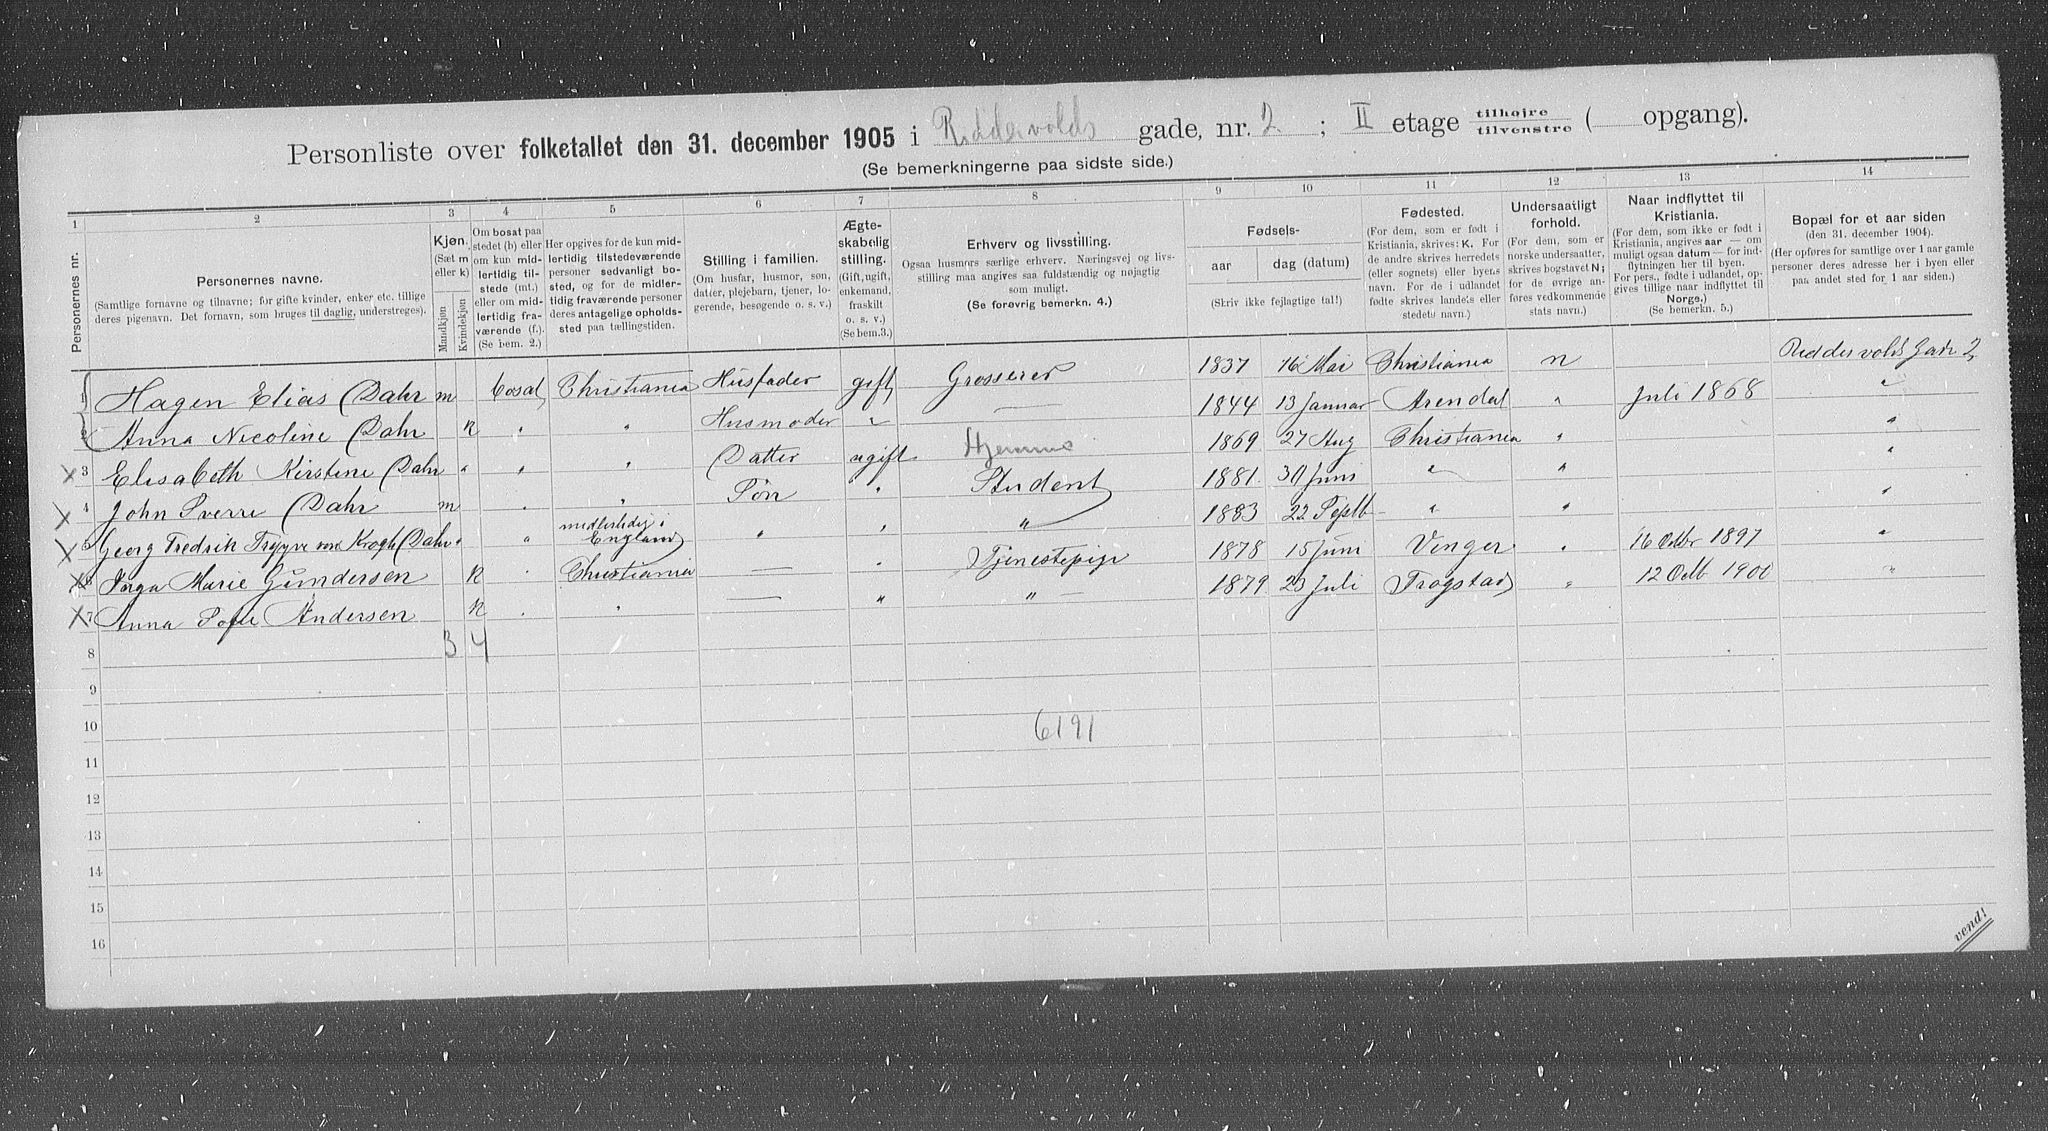 Personliste over folketallet den 31. december 1905 i Riddervolds gade, nr. 2 ; II etage tilhøjre / tilvenstre ( opgang).
(Se bemerkningerne paa sidste side.)
1 2 3 4 5 6 7 8 9 10 11 12 13 14
Personernes nr.
Personernes navne.
(Samtlige fornavne og tilnavne; for gifte kvinder, enker etc. tillige deres pigenavn. Det fornavn, som bruges til daglig, understreges).
Kjøn. (Sæt m eller k) Mandkjøn Kvindekjøn
Om bosat paa stedet (b) eller om kun midlertidig tilstede (mt.) eller om midlertidig fraværende (f.). (Se bem. 2.)
Her opgives for de kun midlertidig tilstedeværende personer sedvanlig bosted, og for de midlertidig fraværende personer deres antagelige opholdssted paa tællingstiden.
Stilling i familien. (Om husfar, husmor, søn, datter, plejebarn, tjener, logerende, besøgende o. s. v.)
Ægteskabelig stilling. (Gift, ugift, enkemand, fraskilt o. s. v.) (Se bem.3.)
Erhverv og livsstilling. Ogsaa husmors særlige erhverv. Næringsvej og livsstilling maa angives saa fuldstændig og nøjagtig som muligt. (Se forøvrig bemerkn. 4.)
Fødsels- aar dag (datum) (Skriv ikke fejlagtige tal!)
Fødested. (For dem, som er født i Kristiania, skrives: K. For de andre skrives herredets (eller sognets) eller byens navn. For de i udlandet fødte skrives landets eller stedets navn.)
Undersaatligt forhold. (For dem, som er norske undersaatter, skrives bogstavet N; for de øvrige anføres vedkommende stats navn.)
Naar indflyttet til Kristiania. (For dem, som ikke er født i Kristiania, angives aar — om muligt ogsaa datum — for indflytningen her til byen. For pers., fødte i udlandet, opgives tillige naar indflyttet til Norge.) (Se bemerkn. 5.)
Bopæl for et aar siden (den 31. december 1904). (Her opføres for samtlige over 1 aar gamle personer deres adresse her i byen eller paa andet sted for 1 aar siden.)
1 Hagen Elias Dahr m bosat Christiania Husfader gift Grosserer 1837 16 Mai Christiania n Riddervolds Gade 2
2 Anna Nicoline Dahr k " " Husmoder " — 1844 13 Januar Arendal " Juli 1868 "
3 Elisabeth Kirstine Dahr " " " Datter ugift Hjemme 1869 27 Aug Christiania " "
4 John Sverre Dahr m " " Søn " Student 1881 30 Juni " " "
5 Georg Fredrik Trygve von Krogh Dahr " " midlertidig i England " " " 1883 22 Septb " " "
6 Inga Marie Gundersen k " Christiania — " Tjenestepige 1878 15 Juni Vinger " 16 Octbr 1897 "
7 Anna Sofie Andersen k " " — " " — 1879 23 Juli Trøgstad " 12 Octb 1900 "
8 3 4
9
10 6191
11
12
13
14
15
16
vend!